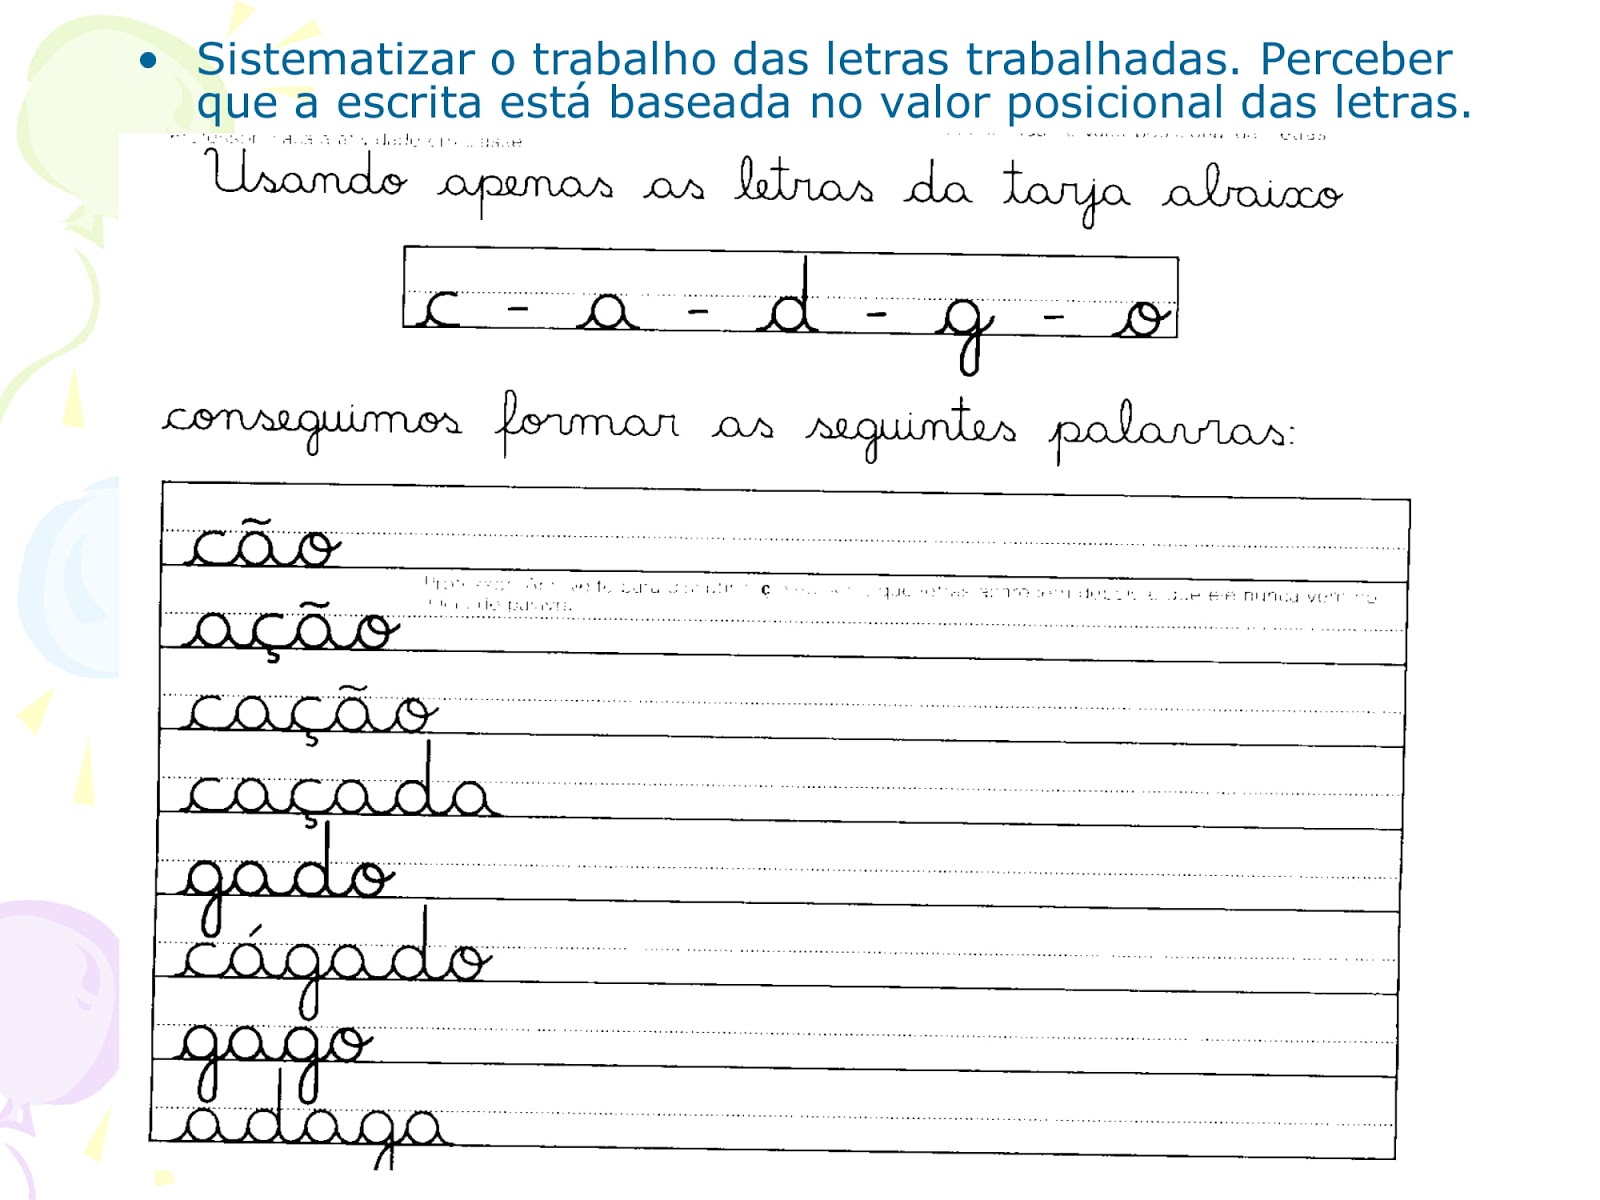 • Sistematizar o trabalho das letras trabalhadas. Perceber
que a escrita está baseada no valor posicional das letras.
Usando apenas as letras da tarja abaixo
c - a - d - g - o
conseguimos formar as seguintes palavras:
cão
ç que ele nunca vem no
ação
cação
caçada
gado
cágado
gago
adaga